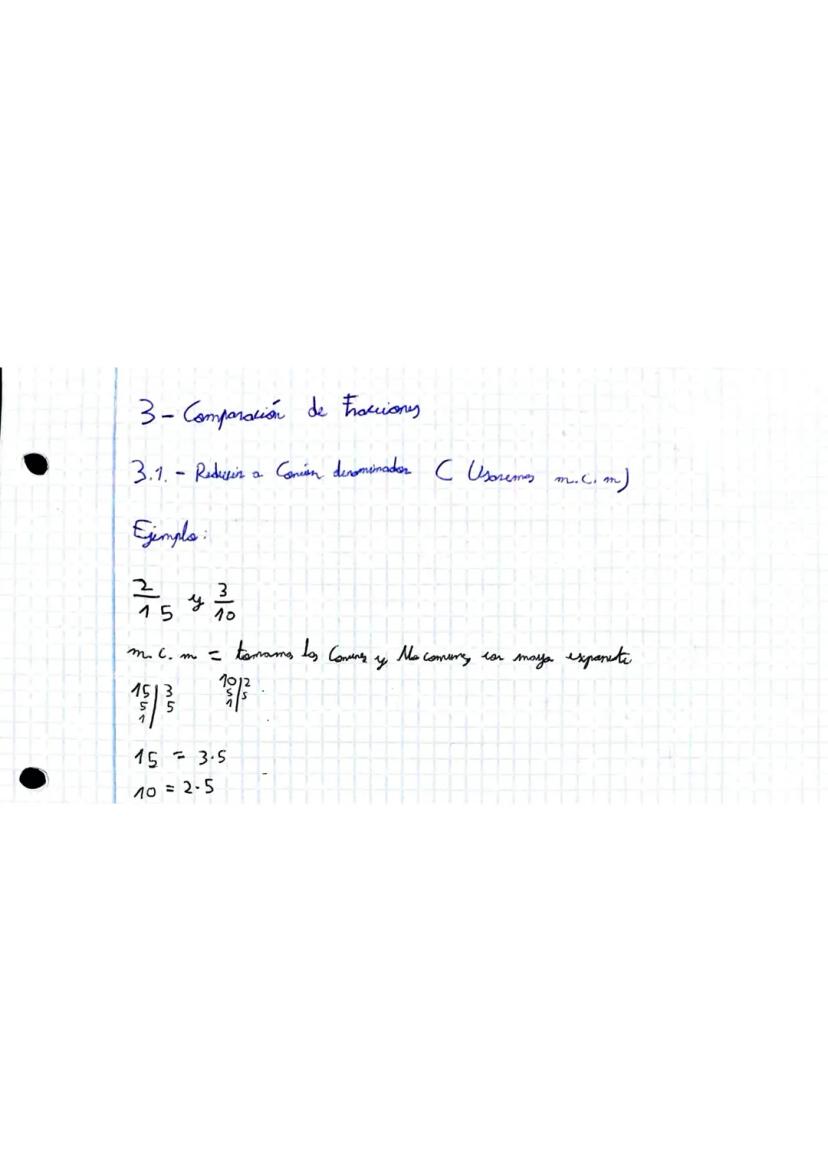 3 - Comparación de Fracciones
3.1. - Reducir a Común denominador (Usaremos m.c.m)
Ejemplo:
2/15 y 3/10
m.c.m = tomamos los Comunes y No comunes con mayor exponente
15 | 3   10 | 2
5 | 5   5 | 5
1   1
15 = 3·5
10 = 2·5